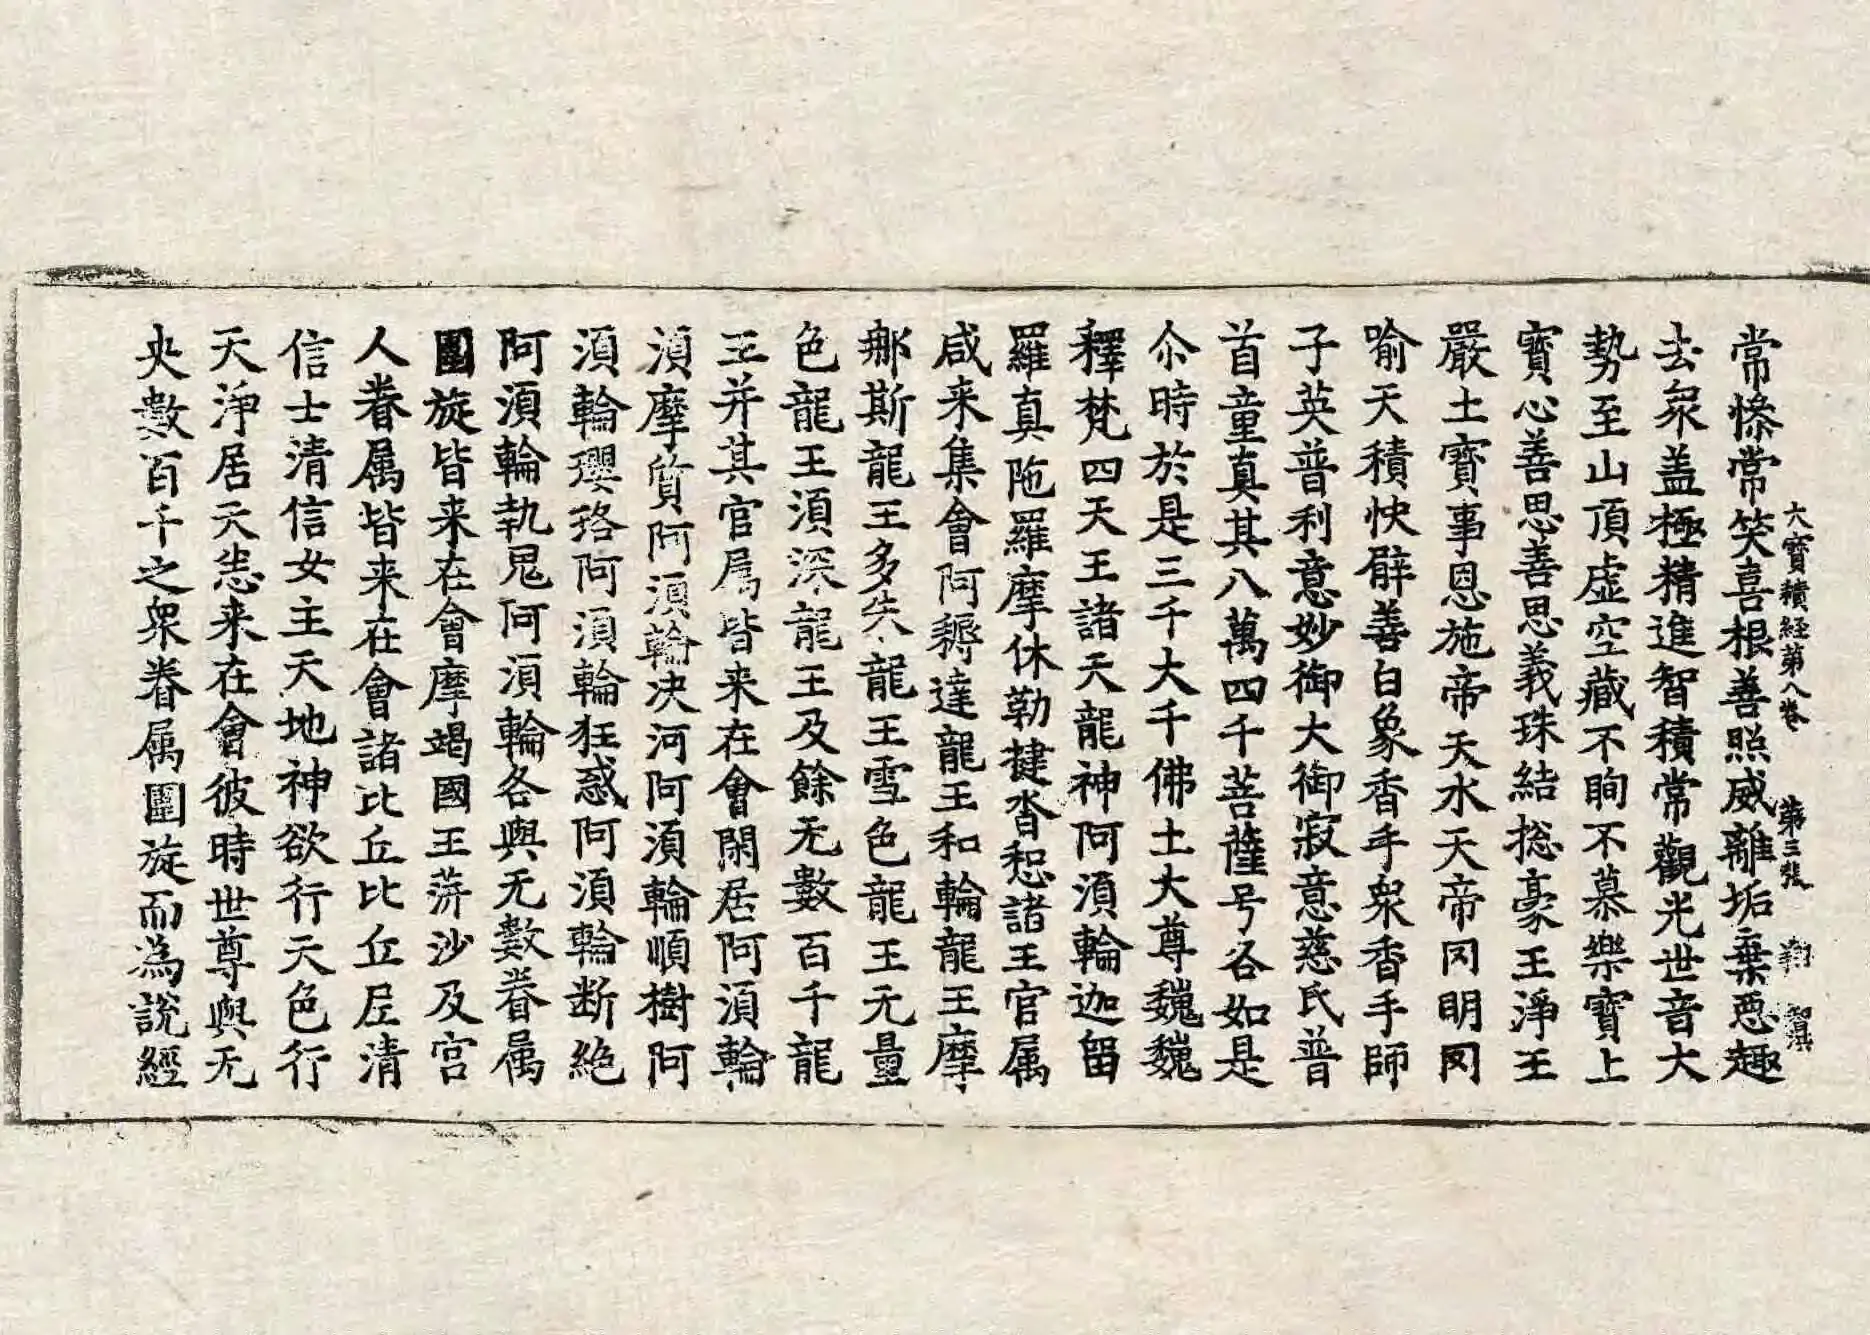 大寶積経第八巻 第三張 翔
常慘常笑喜根善照威離垢棄惡趣
去衆盖極精進智積常觀光世音大
勢至山頂虛空藏不眴不慕樂寶上
寶心善思善思義珠結捴豪王淨王
嚴土寶事恩施帝天水天帝罔明罔
喻天積快辟善白象香手衆香手師
子英普利意妙御大御寂意慈氏普
首童真其八萬四千菩薩号各如是
尒時於是三千大千佛土大尊魏魏
釋梵四天王諸天龍神阿湏輪迦留
羅真陁羅摩休勒揵沓惒諸王官属
咸来集會阿耨達龍王和輪龍王摩
那斯龍王多失龍王雪色龍王无量
色龍王湏深龍王及餘无數百千龍
王并其官属皆来在會閑居阿湏輪
湏摩質阿湏輪决河阿湏輪順樹阿
湏輪瓔珞阿湏輪狂惑阿湏輪断絶
阿湏輪執鬼阿湏輪各與无數眷属
圍旋皆来在會摩竭國王蓱沙及宮
人眷属皆来在會諸比丘比丘尼清
信士清信女主天地神欲行天色行
天淨居天悉来在會彼時世尊與无
央數百千之衆眷属圍旋而為說經